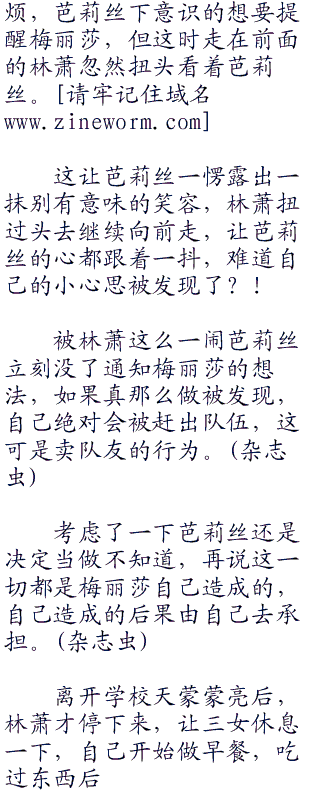 烦，芭莉丝下意识的想要提
醒梅丽莎，但这时走在前面
的林萧忽然扭头看着芭莉
丝。[请牢记住域名
www.zineworm.com]
这让芭莉丝一愣露出一
抹别有意味的笑容，林萧扭
过头去继续向前走，让芭莉
丝的心都跟着一抖，难道自
己的小心思被发现了？！
被林萧这么一闹芭莉丝
立刻没了通知梅丽莎的想
法，如果真那么做被发现，
自己绝对会被赶出队伍，这
可是卖队友的行为。(杂志
虫)
考虑了一下芭莉丝还是
决定当做不知道，再说这一
切都是梅丽莎自己造成的，
自己造成的后果由自己去承
担。(杂志虫)
离开学校天蒙蒙亮后，
林萧才停下来，让三女休息
一下，自己开始做早餐，吃
过东西后